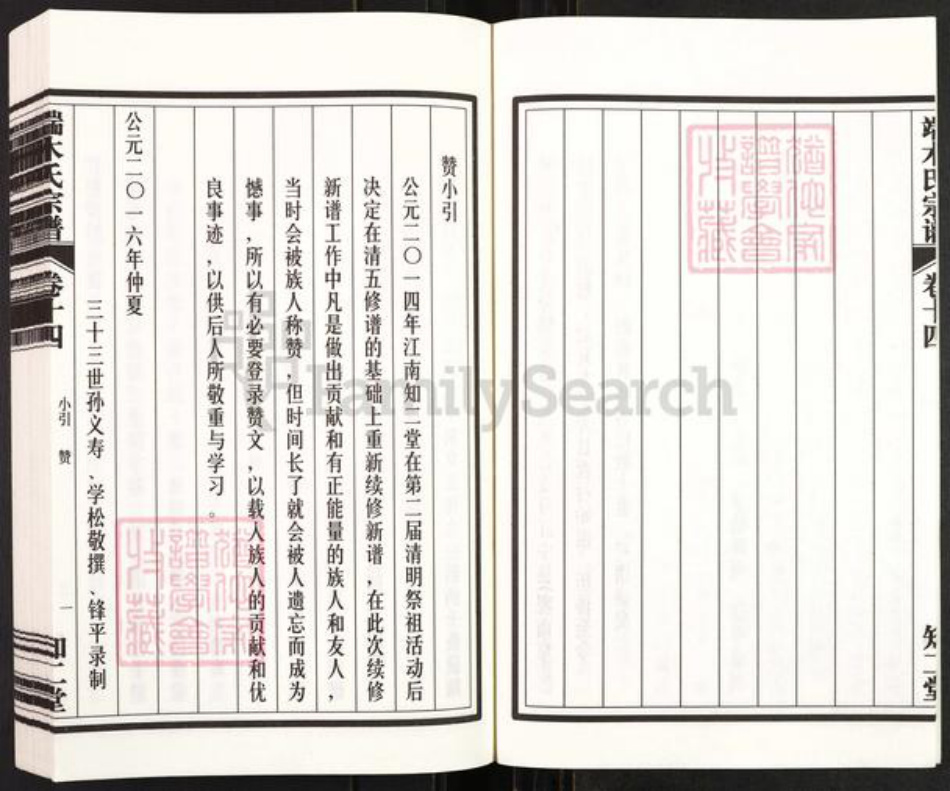 端木氏宗谱
卷十四
知二堂
赞小引
公元二〇一四年江南知二堂在第二届清明祭祖活动后
决定在清五修谱的基础上重新续修新谱，在此次续修
新谱工作中凡是做出贡献和有正能量的族人和友人，
当时会被族人称赞，但时间长了就会被人遗忘而成为
憾事，所以有必要登录赞文，以载人族人的贡献和优
良事迹，以供后人所敬重与学习。
公元二〇一六年仲夏
三十三世孙义寿、学松敬撰、锋平录制
端木氏宗谱
卷十四
小引 赞
一
知二堂
FamilySearch